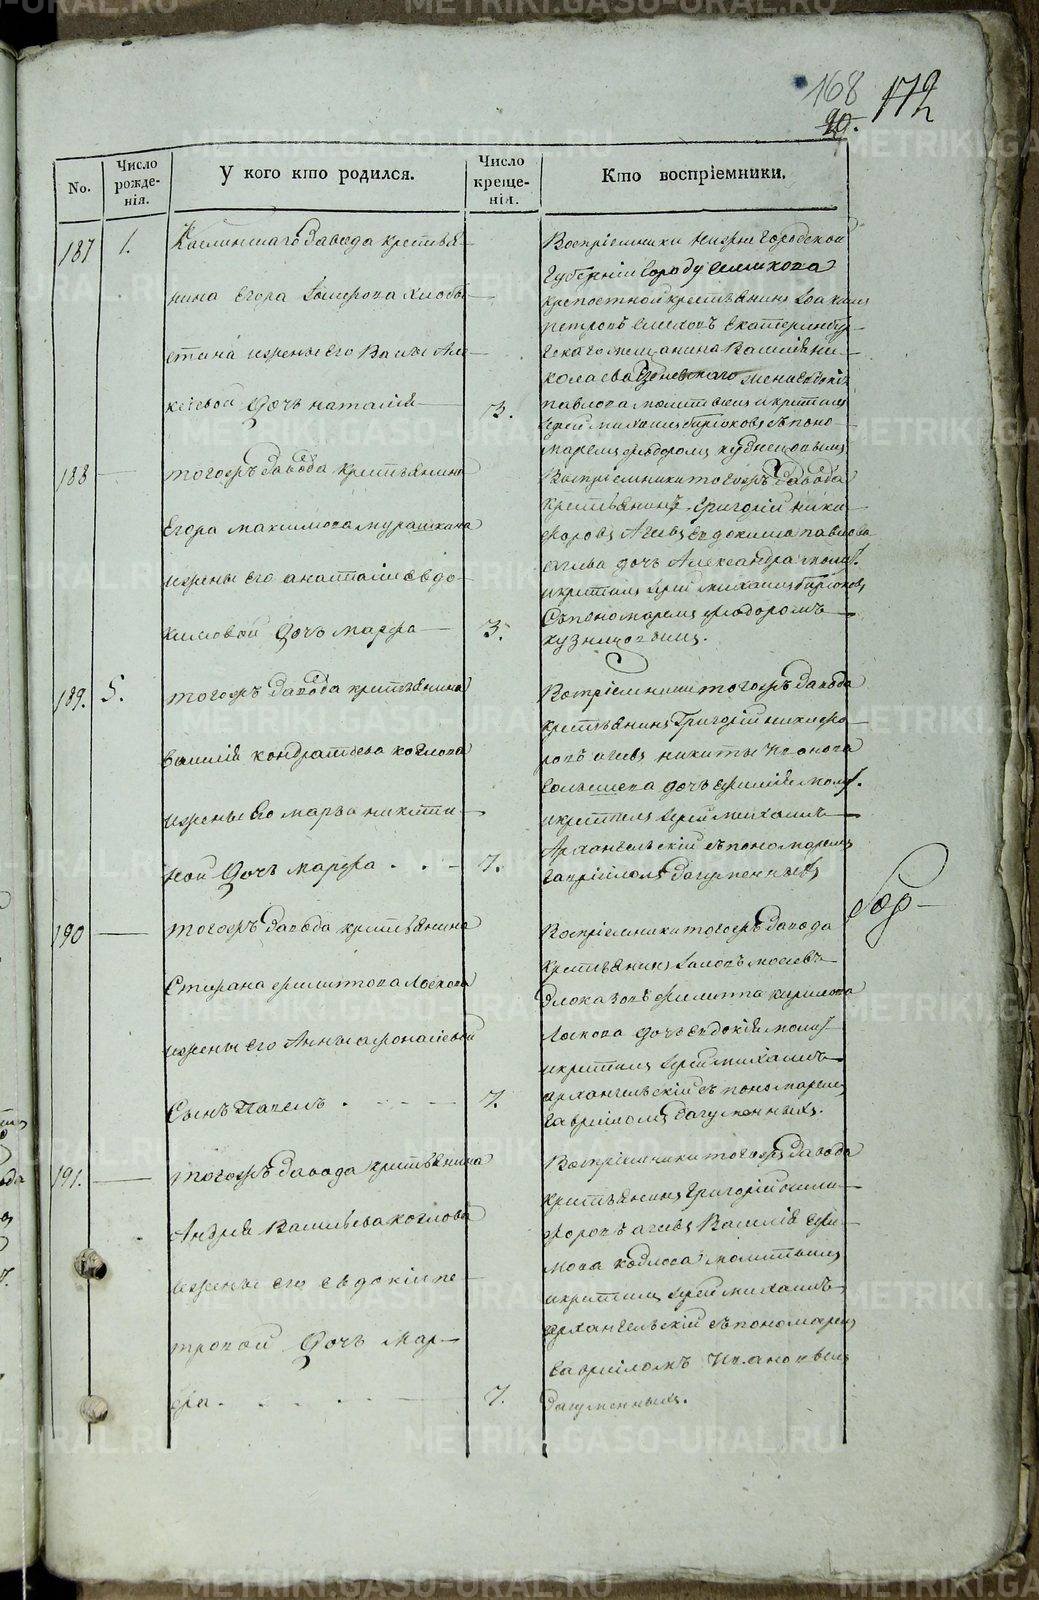 168 172
20.
No.
Число рожденія.
У кого кто родился.
Число крещенія.
Кто воспріемники.
187 1. Каслинскаго завода крестья-
нина Егора
стина и жены его Вассы Але-
ксѣевой дочь наталія 3.
Воспріемники Нижне Городской
Губерніи Городу
крепостной крестьянинъ
петровъ Екатеринбур-
скаго мещанина Василія Ни-
колаева жена Евдокія
павлова молитвилъ и крестилъ
Іерей михаилъ Бирюковъ съ поно-
маремъ Ѳедоромъ кузнецовымъ
188 — тогожъ завода крестьянина
Егора максимова мурашкина
и жены его анастасіи евдо-
кимовой дочь марѳа 3.
Воспріемники тогожъ завода
крестьянинъ Григорій ники-
форовъ Агевъ Евдокима павлова
дочь Александра молит.
и крестилъ Іерей михаилъ Бирюковъ
Съ пономаремъ Ѳедоромъ
кузнецовымъ.
189. 5. тогожъ завода крестьянина
василія кондратьева козлова
и жены его марѳа никити-
ной дочь марѳа . . - 7.
Воспріемники тогожъ завода
крестьянинъ Григорій никифо-
ровъ агевъ никиты Иванова
дочь молит.
и крестилъ Іерей михаилъ
Архангельскій съ пономаремъ
гавріиломъ Загуменныхъ
190 — тогожъ завода крестьянина
Стефана филиппова Лоскова
и жены его Анны афонасіевой
Сынъ Павелъ . - - - - 7.
Воспріемники тогожъ завода
крестьянинъ моісеевъ
филиппа кирилова
Лоскова дочь евдокія молит
и крестилъ Іерей михаилъ
архангельскій съ пономаремъ
гавріиломъ Загуменныхъ.
191. — тогожъ завода крестьянина
Андрея Васильева козлова
и жены его евдокіи пе-
тровой дочь мар-
ѳа. . . . . . 7.
Воспріемники тогожъ завода
крестьянинъ Григорій ники-
форовъ агевъ Василія ефи-
мова молитвилъ
и крестилъ Іерей михаилъ
архангельскій съ пономаремъ
гавріиломъ Ивановымъ
Загуменныхъ.
METRIKI.GASO-URAL.RU